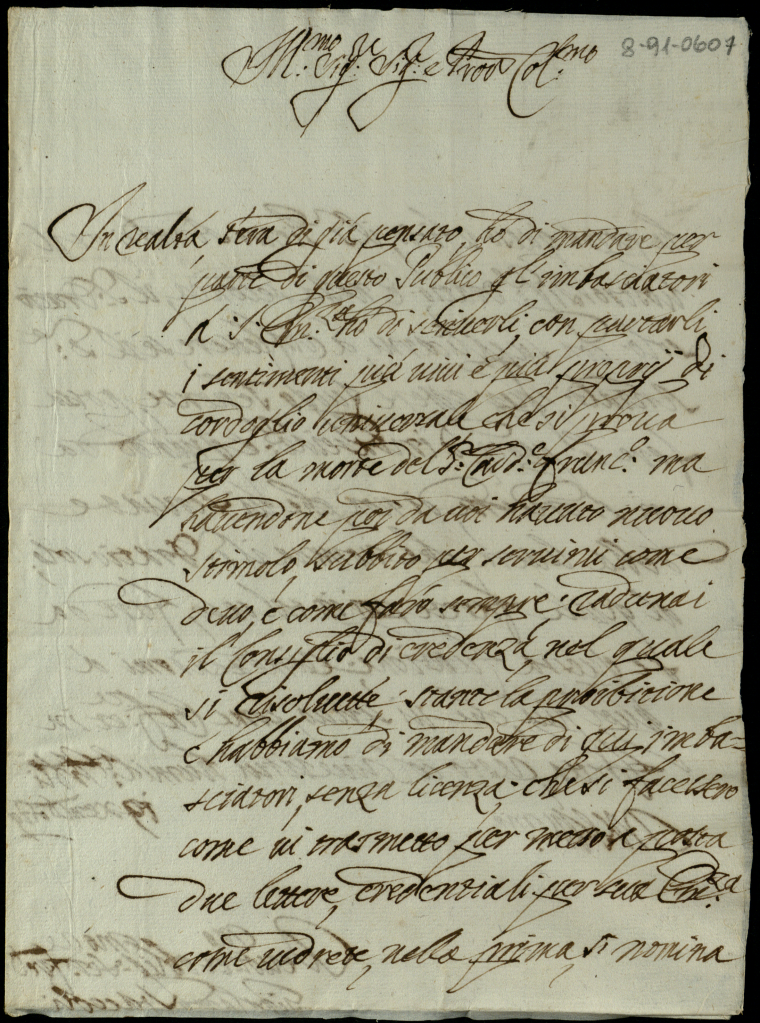 8-91-0607
M.mo Sig.re Sig.r e Pron Col.mo
In realtà s'era di già pensato, ho di mandare per
parte di questo Publico gl'imbasciatori
à S. Em.za ho di scriverli, con portarli
i sentimenti più vivi e più proprij di
cordoglio universale che si prova
per la morte del S.r Card.e Franc.o ma
havendone poi da voi havuto nuovo
stimolo, subbito per servirvi come
devo, e come farò sempre: radunai
il Consiglio di credenza, nel quale
si risolvette: stante la prohibitione
c'habbiamo di mandare di qui imba=
sciatori, senza licenza: che si facessero
come vi trasmetto per messo a posta
due lettere, credentiali per sua Em.za
come vedrete, nella prima, si nomina